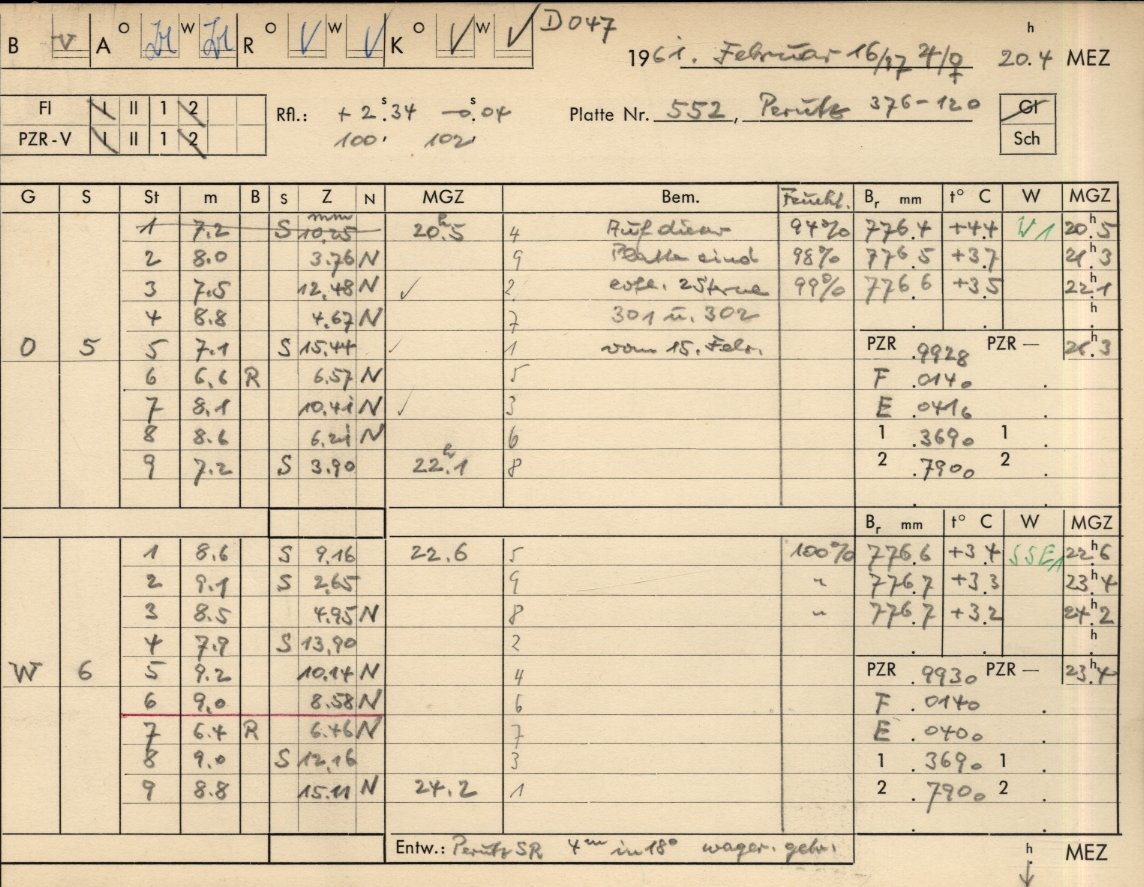 B V A O W R O V W V K O V W V D047
1961. Februar 16/17 ♃/♀ h 20.4 MEZ
FI I II 1 2
Rfl.: +2.s34 -0.s04
Platte Nr. 552, Perutz 376-120
Gl
PZR-V I II 1 2
100' 102'
Sch
G S St m B S Z N MGZ Bem. Feucht. Br mm t° C W MGZ
mm
1 7.2 S 10.25 20.h5 4 Auf dieser 94% 776.4 +4.4 W1 20.h5
2 8.0 3.76 N 9 Platte sind 98% 776.5 +3.7 21.h3
3 7.5 12.48 N ✓ 2 2 Sterne 99% 776.6 +3.5 22.h1
4 8.8 4.67 N 7 301 u. 302 h
O 5 5 7.1 S 15.44 ✓ 1 vom 15. Febr. PZR .9928 PZR — 21.h3
6 6.6 R 6.57 N 5 F .0140
7 8.1 10.41 N ✓ 3 E .0416
8 8.6 6.21 N 6 1 .3690 1
9 7.2 S 3.90 22.h1 8 2 .7900 2
Br mm t° C W MGZ
1 8.6 S 9.16 22.6 5 100% 776.6 +3.4 SSE1 22.h6
2 9.1 S 2.65 9 " 776.7 +3.3 23.h4
3 8.5 4.95 N 8 " 776.7 +3.2 24.h2
4 7.9 S 13.90 2 h
W 6 5 9.2 10.14 N 4 PZR .9930 PZR — 23.h4
6 9.0 8.58 N 6 F .0140
7 6.4 R 6.46 N 7 E .0400
8 9.0 S 12.16 3 1 .3690 1
9 8.8 15.11 N 24.2 1 2 .7900 2
Entw.: Perutz SR 4m in 18° wager. gebr. h MEZ